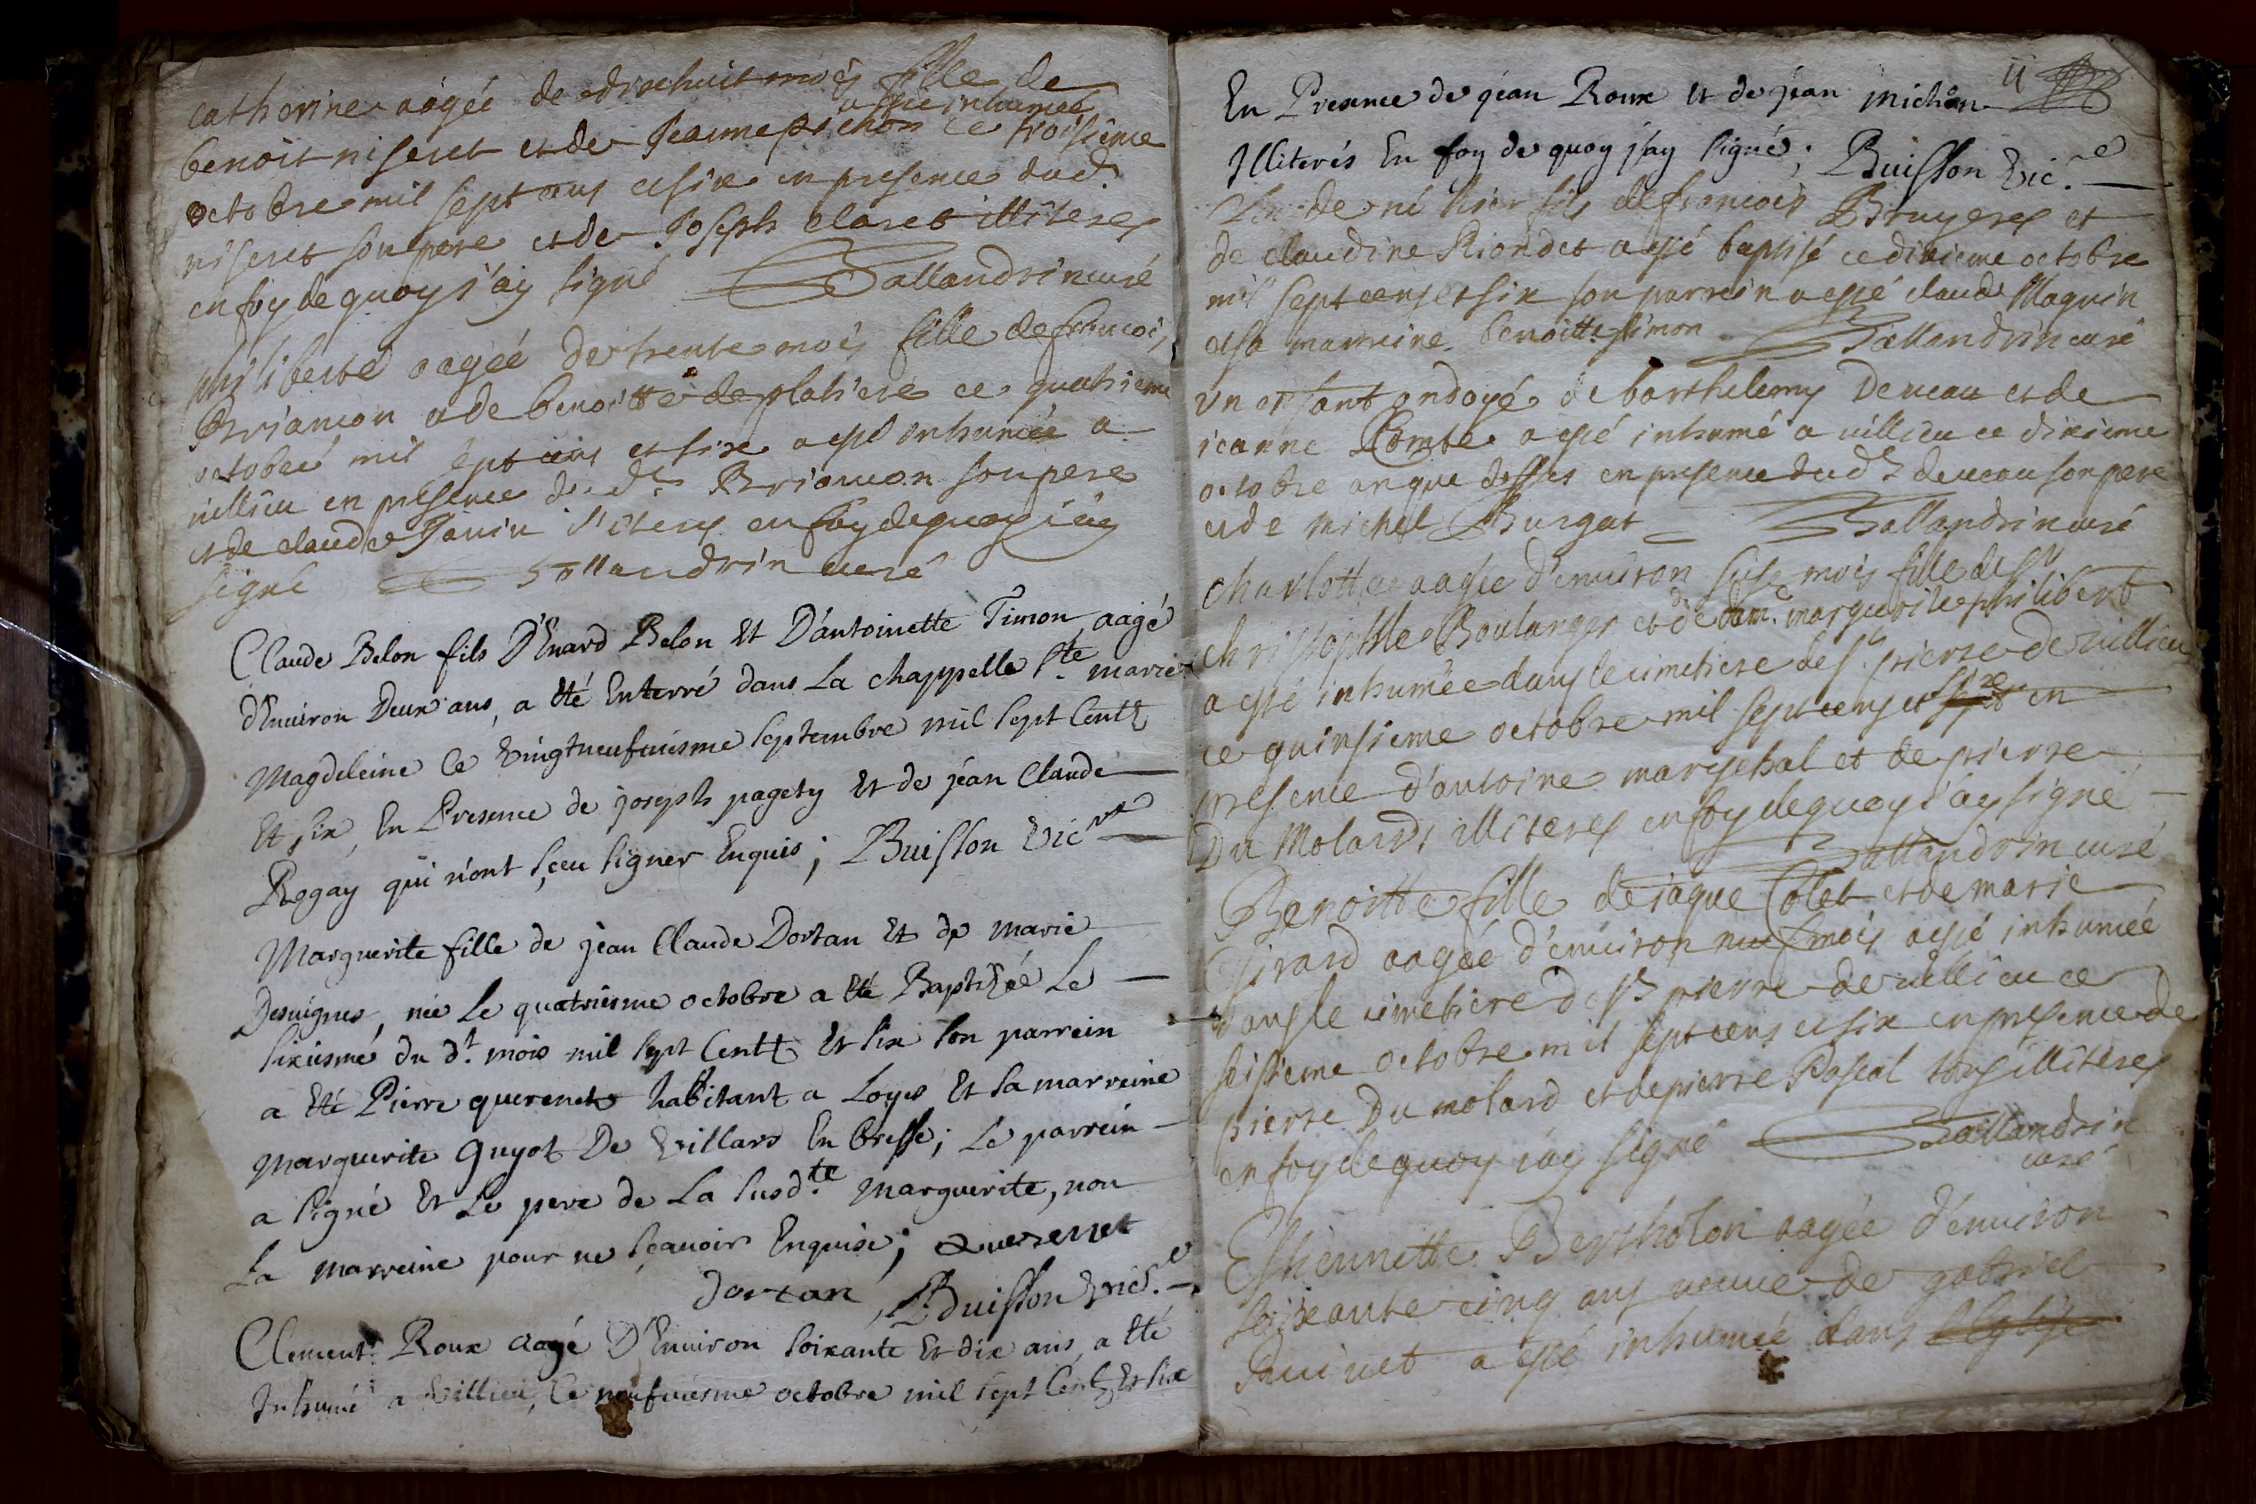 catherine aagée de dixhuit mois fille de
benoit niseret et de Jeanne pichon a esté inhumée ce troisieme
octobre mil sept cens et six en presence dud.
niseret son pere et de Joseph claret illiteres
en foy de quoy j'ay signé Ballandrin curé
philiberte aagéé de trente mois fille de francois
Briancon et de benoitte de platiere ce quatrieme
octobre mil sept cens et six a esté inhumée a
villieu en presence du dt Briancon son pere
et de claude Janin illiteres en foy de quoy j'ay
signé Ballandrin curé
Claude Belon fils D'Enard Belon Et D'antoinette Timon, aagé
d'Enuiron Deux ans, a Eté Enterré dans La chappelle Ste marie
Magdeleine Ce Vingtneufuiesme Septembre mil Sept Centz
Et Six, En Presence de joseph pagety Et de jéan Claude
Rogay qui n'ont sçeu signer Enquis; Buisson Vicre
Marguerite fille de jean Claude Dortan Et de marie
Desuignes, née Le quatriesme octobre a Eté Baptizéé Le
sixiesme du dt. mois mil sept Centz Et six son parrein
a Eté Pierre querenet habitant a Loyes Et sa marreine
Marguerite Guyot De Villars En bresse; Le parrein
a signé Et Le pere de La susd.te Marguerite, non
La marreine pour ne sçauoir Enquise; Querenet
dortan, Buisson Vic.e
Clement Roux aagé D'Enuiron soixante Et dix ans, a Eté
Inhumé a Villieu, Ce neufuiesme octobre mil sept Centz Et six
11
En Presence de jéan Roux et de jéan michon
Illiterés En foy de quoy j'ay signé; Buisson Vic.e
né hier fils de francois Bruyeres et
de claudine Riondet a esté baptisé ce dixieme octobre
mil sept cens et six son parrein a esté claude Maquin
et sa marreine benoitte simon Ballandrin curé
vn enfant ondoyé de barthelemy Deueau et de
jeanne Comte a esté inhumé a villieu ce dixieme
octobre an que dessus en presence dud.t deueau son pere
et de michel Burgat Ballandrin curé
charlotte aagée d'enuiron seise mois fille de sr
christophle Boulanger et de dam.e marguerite philibert
a esté inhumée dans le cimetiere de st pierre de villieu
ce quinsieme octobre mil sept cens et six en
presence d'antoine mareschal et de pierre
Du Molard illiteres en foy de quoy j'ay signé
Ballandrin curé
Benoitte fille de jaque Colet et de marie
Girard aagéé d'enuiron neuf mois a esté inhuméé
dans le cimetiere de st pierre de villieu ce
seisieme octobre mil sept cens et six en presence de
pierre Du molard et de pierre Pascal tous illiteres
en foy de quoy j'ay signé Ballandrin
curé
Estiennette Bertholon aagée d'enuiron
soixante cinq ans veuue de gabriel
a esté inhumée dans l'Eglise